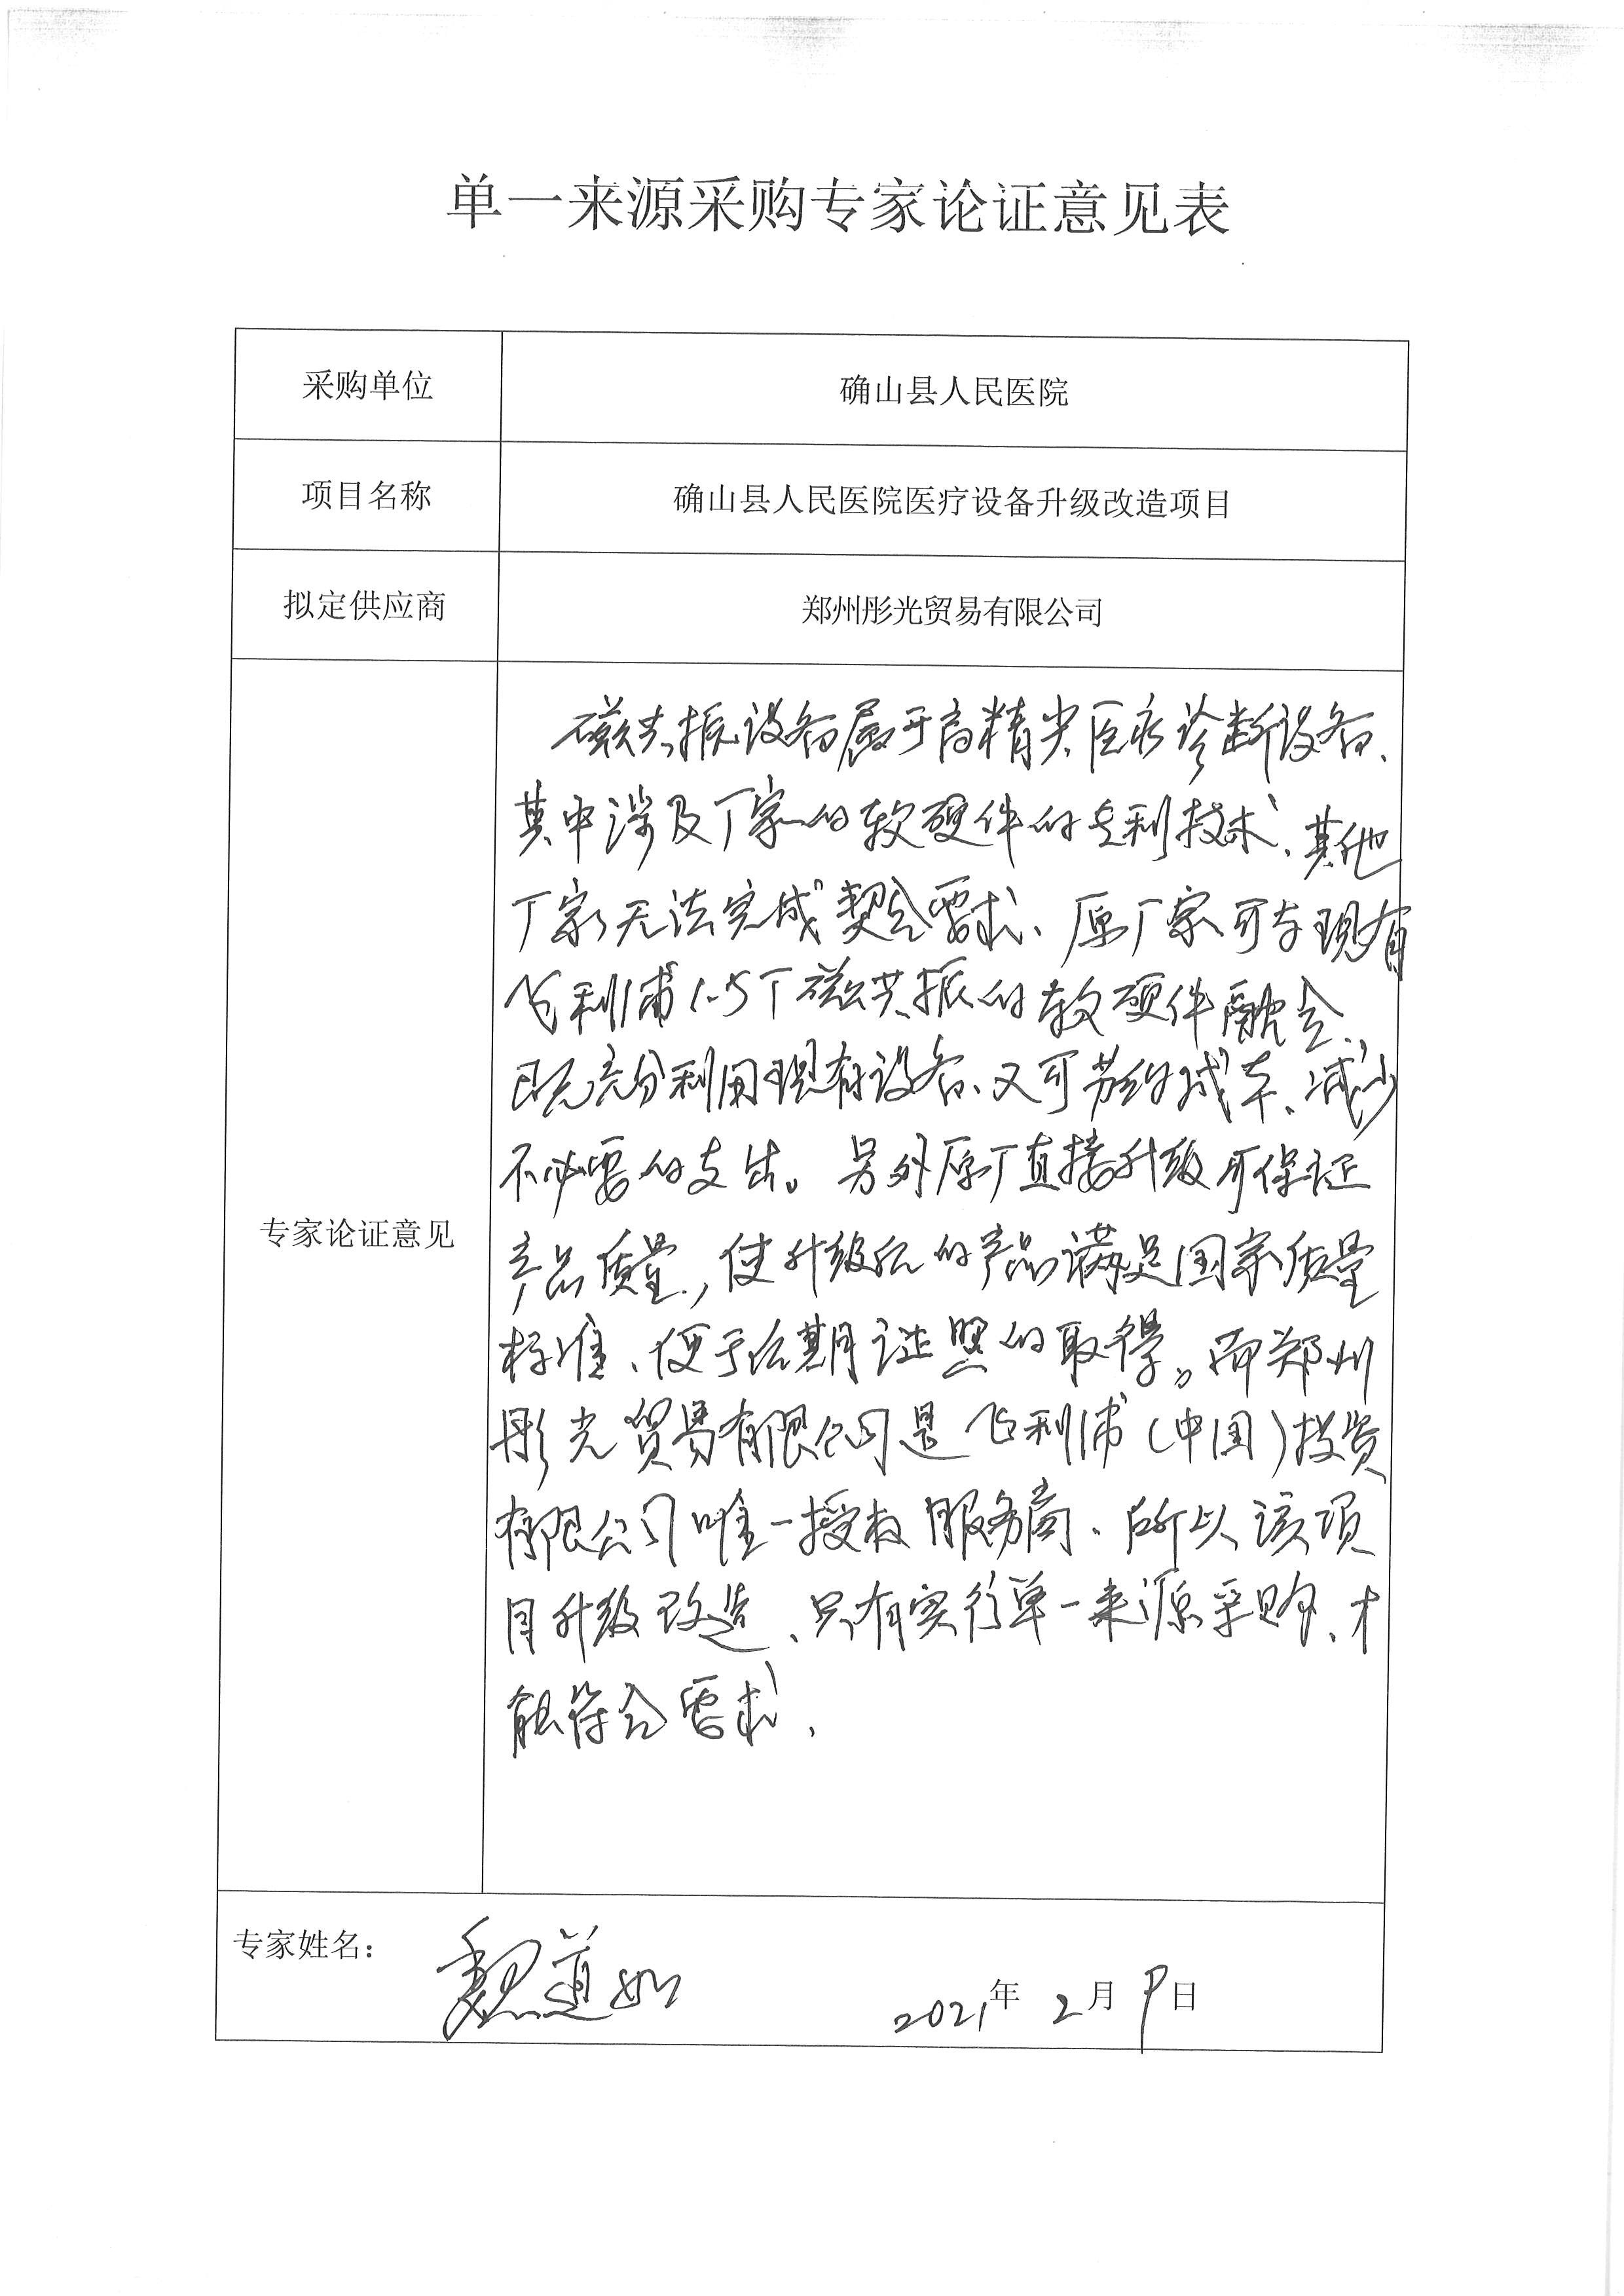 单一来源采购专家论证意见表
采购单位 确山县人民医院
项目名称 确山县人民医院医疗设备升级改造项目
拟定供应商 郑州彤光贸易有限公司
专家论证意见
磁共振设备属于高精尖医疗诊断设备、
其中涉及厂家的软硬件的专利技术、其他
厂家无法完成契合需求、原厂家可与现有
飞利浦1.5T磁共振的软硬件融合、
已充充分利用现有设备、又可节约成本、减少
不必要的支出。另外原厂直接升级可保证
产品质量,使升级后的产品满足国家质量
标准、便于后期证照的取得。而郑州
彤光贸易有限公司是飞利浦(中国)投资
有限公司唯一授权服务商、所以该项
目升级改造、只有实行单一来源采购、才
能符合需求、
专家姓名: 魏道如 2021年2月9日